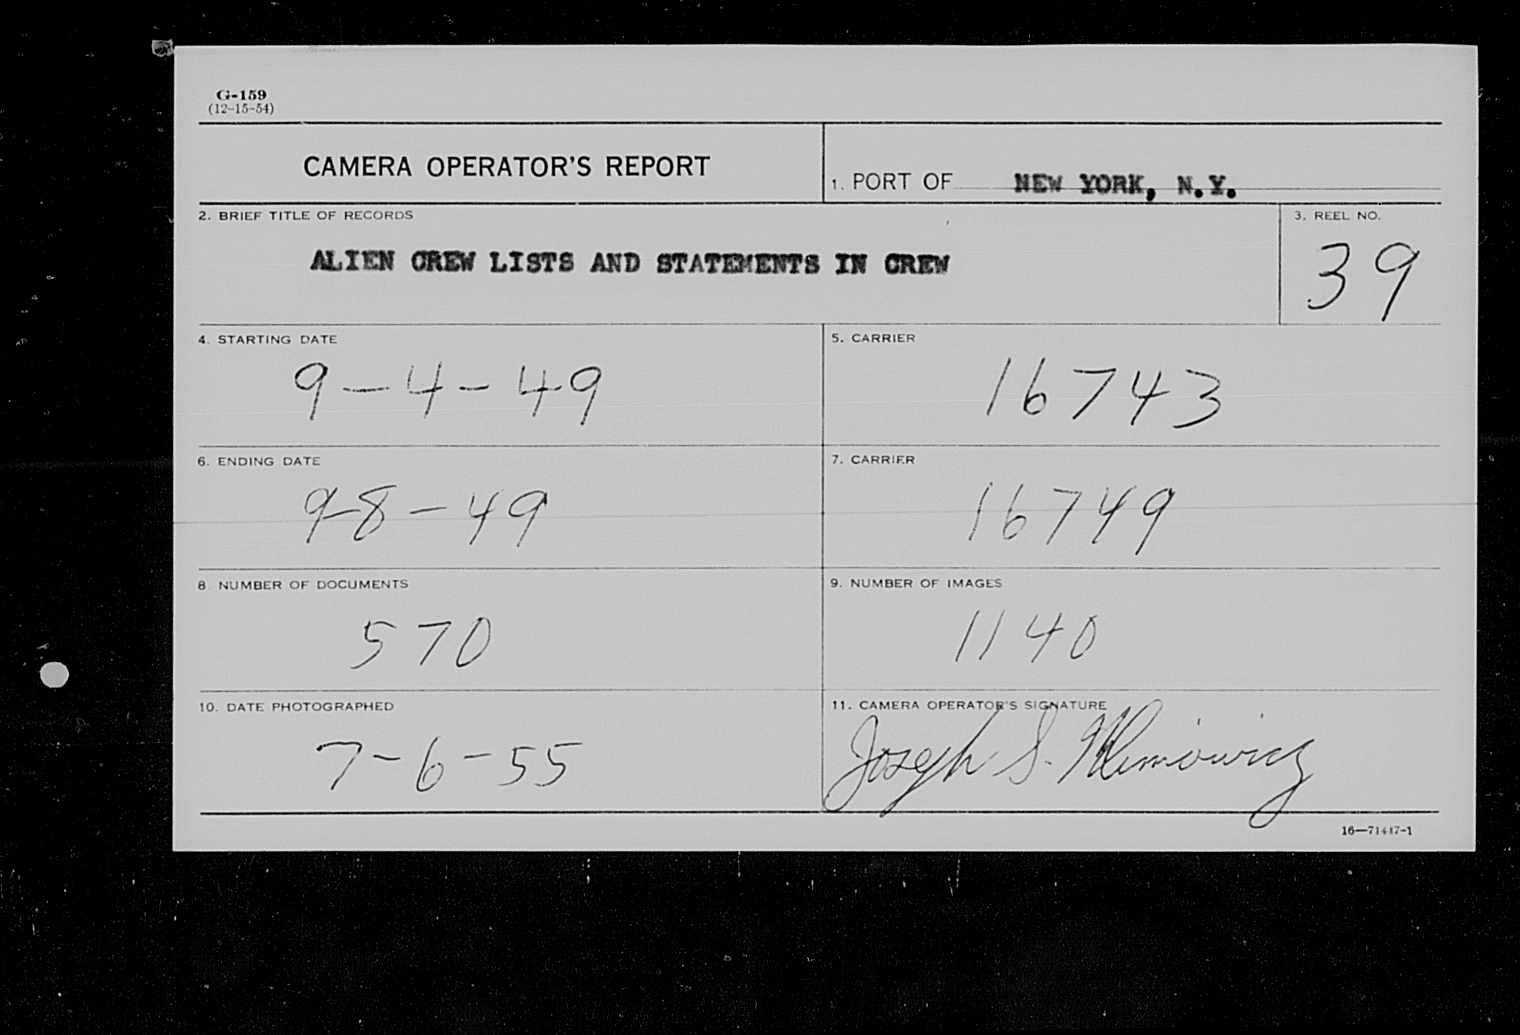 G-159
(12-15-54)
CAMERA OPERATOR'S REPORT
1. PORT OF NEW YORK, N.Y.
2. BRIEF TITLE OF RECORDS
ALIEN CREW LISTS AND STATEMENTS IN CREW
3. REEL NO.
39
4. STARTING DATE
9-4-49
5. CARRIER
16743
6. ENDING DATE
9-8-49
7. CARRIER
16749
8. NUMBER OF DOCUMENTS
570
9. NUMBER OF IMAGES
1140
10. DATE PHOTOGRAPHED
7-6-55
11. CAMERA OPERATOR'S SIGNATURE
Joseph S.
16—71417-1